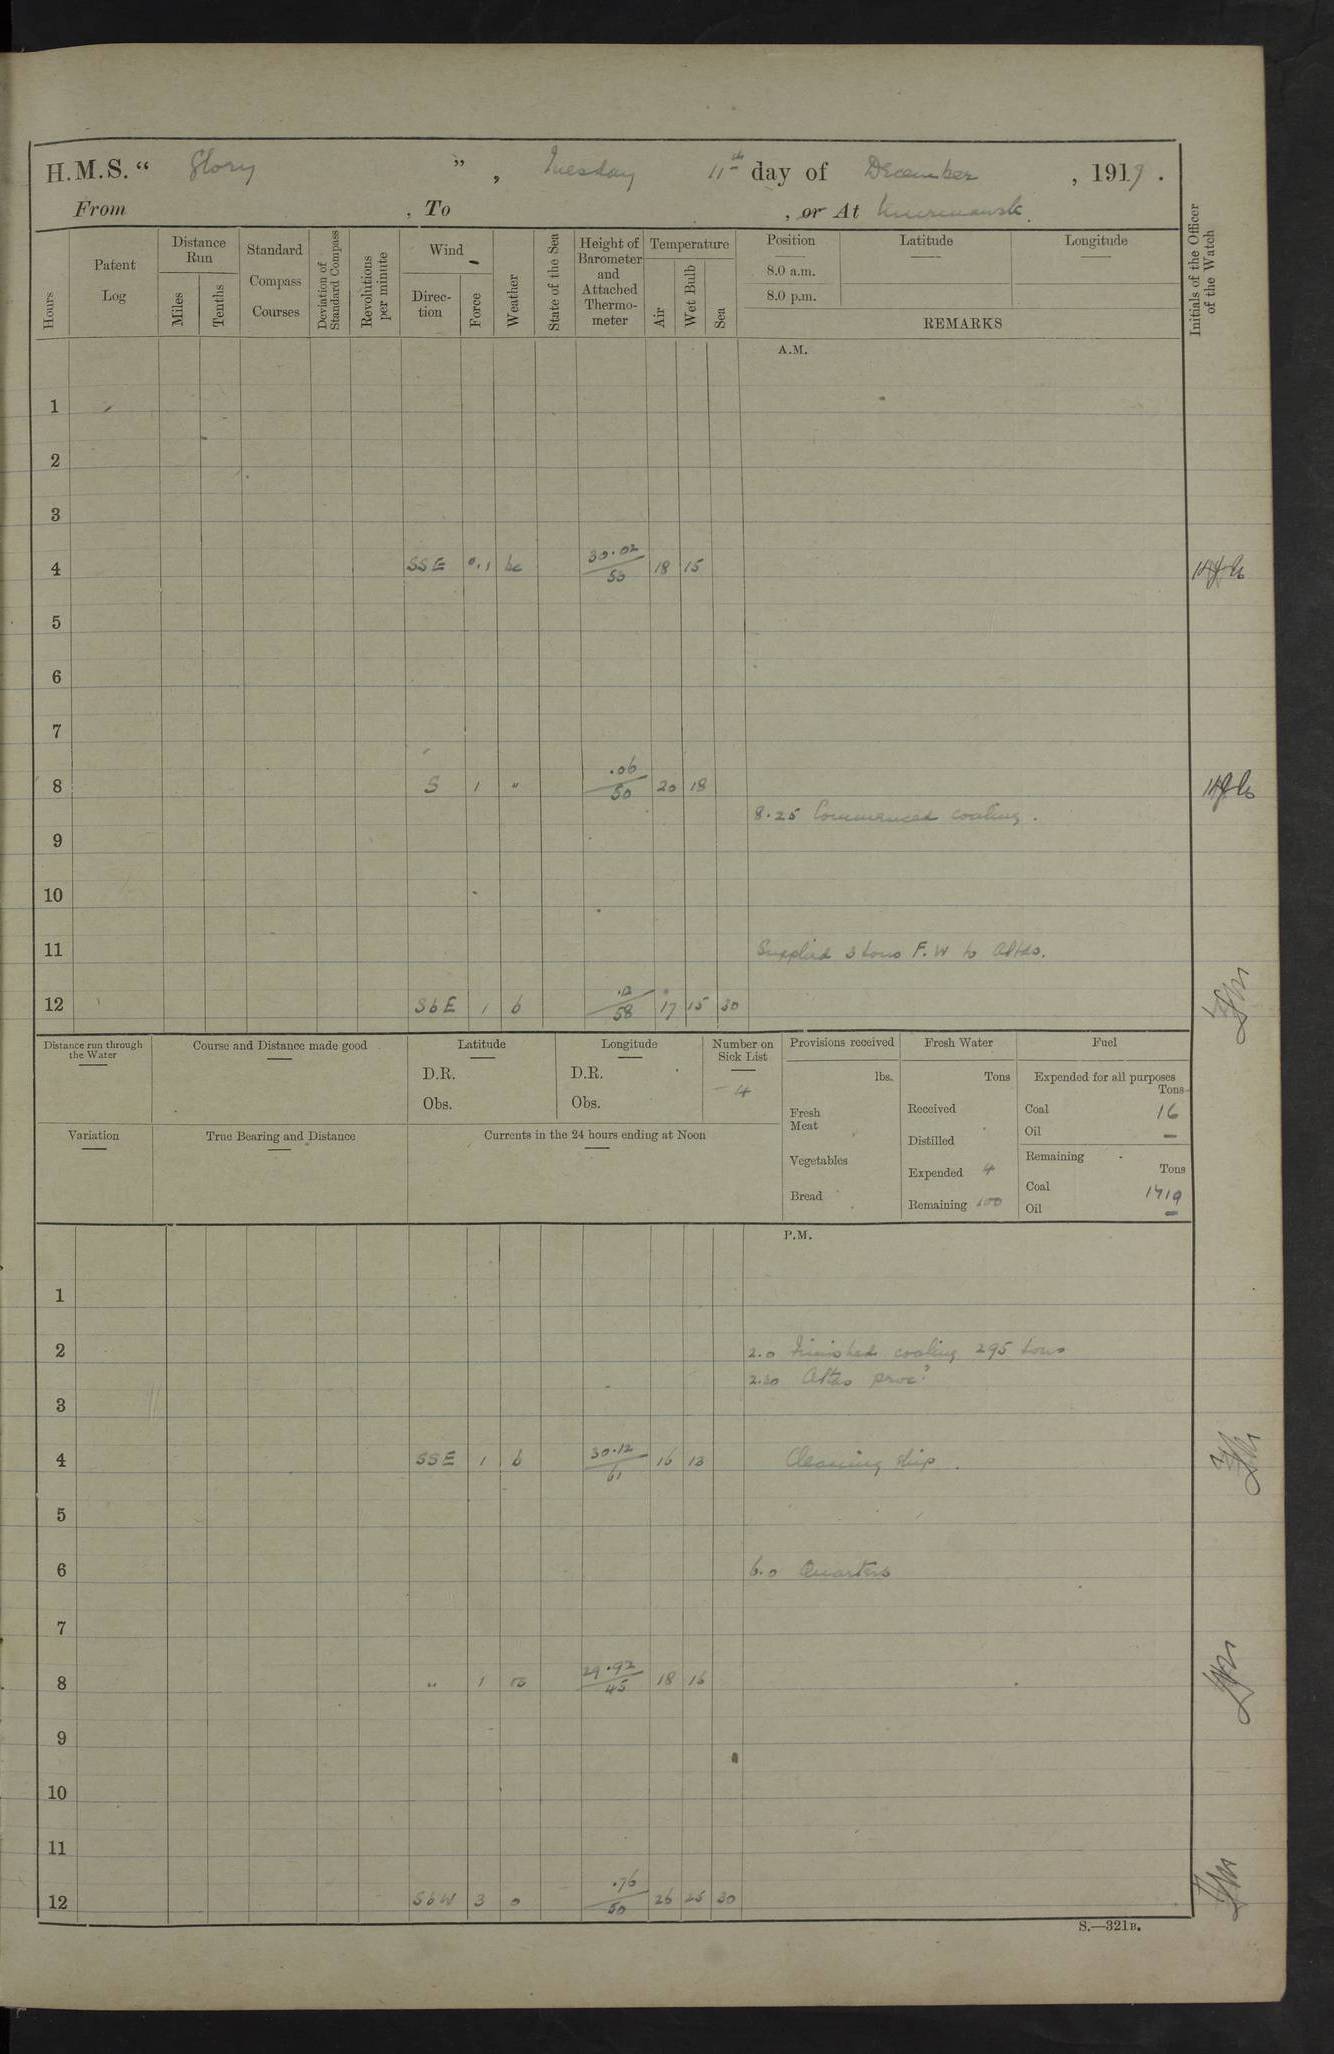 H.M.S. “ Glory ” , Tuesday 11th day of December , 1917 .
From , To , or At Murmansk.
Hours
Patent Log
Distance Run
Miles
Tenths
Standard Compass Courses
Deviation of Standard Compass
Revolutions per minute
Wind
Direction
Force
Weather
State of the Sea
Height of Barometer and Attached Thermometer
Temperature
Air
Wet Bulb
Sea
Position
8.0 a.m.
8.0 p.m.
Latitude
Longitude
REMARKS
Initials of the Officer of the Watch
A.M.
1
2
3
4 SSE 0.1 bc 30.02 / 50 18 15
5
6
7
8 S 1 " .06 / 50 20 18
8.25 Commenced coaling.
9
10
11 Supplied 3 tons F.W to Attas.
12 SbE 1 b .12 / 58 17 15 30
Distance run through the Water
Course and Distance made good
Latitude
D.R.
Obs.
Longitude
D.R.
Obs.
Number on Sick List
4
Provisions received
lbs.
Fresh Meat
Vegetables
Bread
Fresh Water
Tons
Received
Distilled
Expended 4
Remaining 100
Fuel
Expended for all purposes
Tons
Coal 16
Oil –
Remaining
Tons
Coal 1719
Oil –
Variation
True Bearing and Distance
Currents in the 24 hours ending at Noon
P.M.
1
2 2.0 Finished coaling 295 tons
2.20 Attas proc?
3
4 SSE 1 b 30.12 / 61 16 13 Cleaning ship.
5
6 6.0 Quarters
7
8 " 1 29.92 / 45 18 16
9
10
11
12 SbW 3 o .76 / 50 26 25 30
S.—321B.